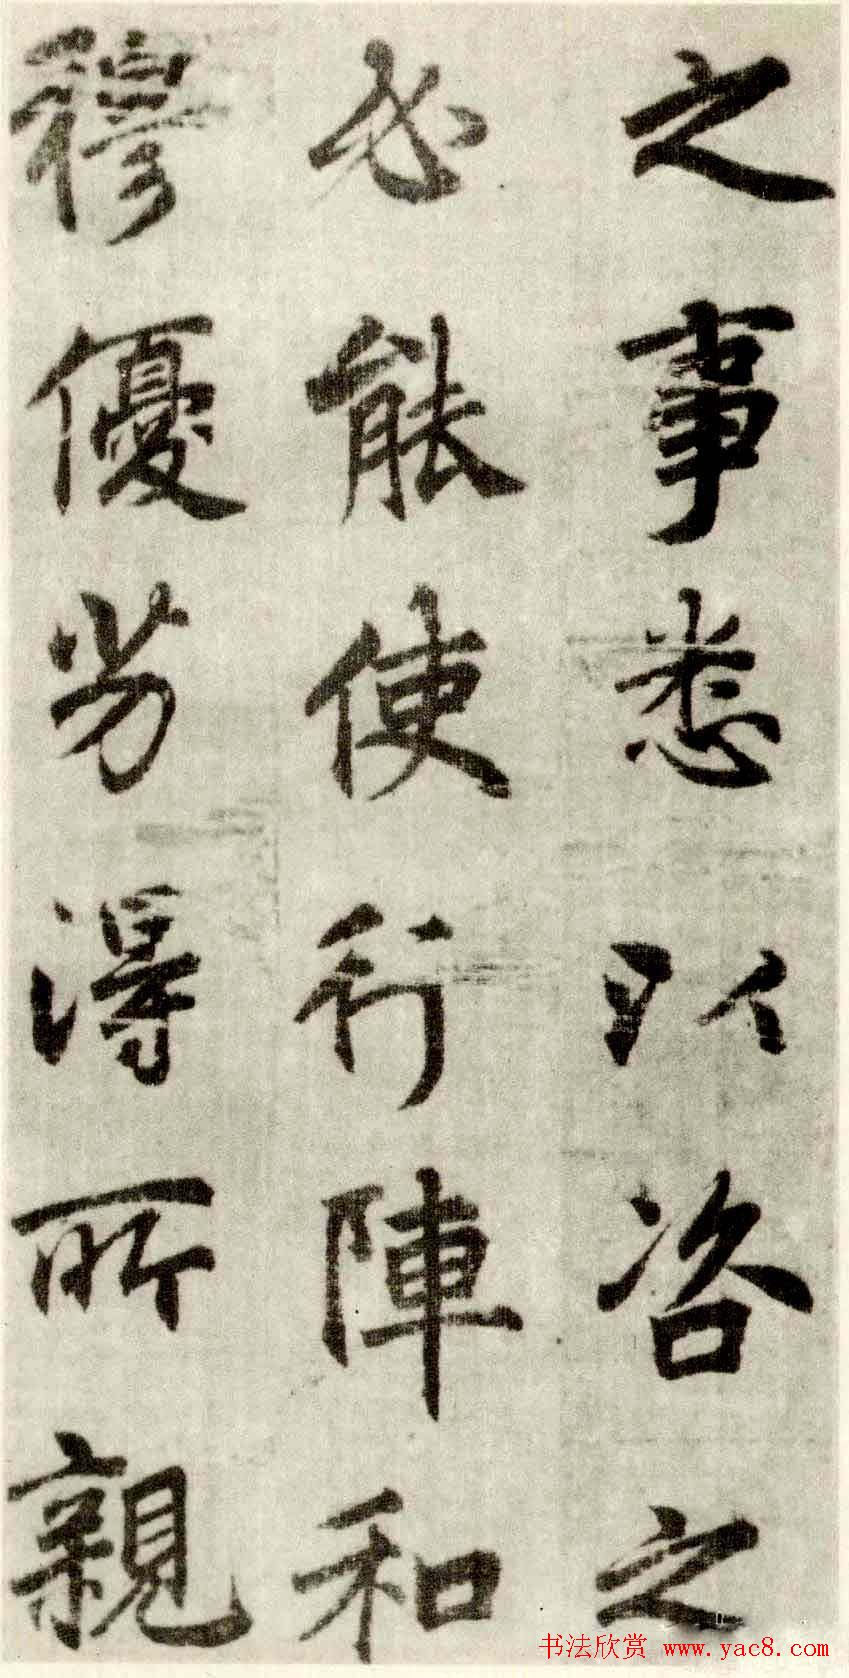 之事悉以咨之
必能使行陣和
穆優劣得所親
书法欣赏 www.yac8.com